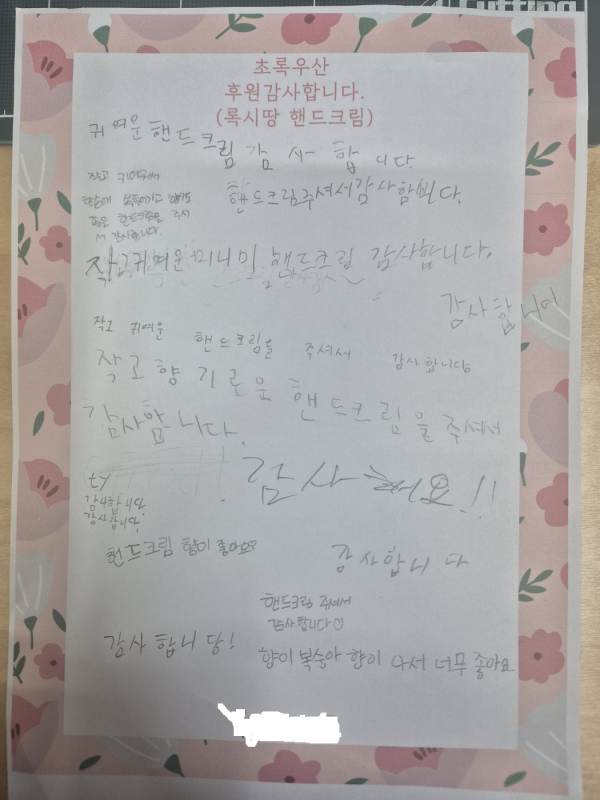 Cutting
초록우산
후원감사합니다.
(록시땅 핸드크림)
귀여운 핸드크림 감사합니다.
작고 귀여워서
좋은 핸드크림을 주셔
서 감사합니다.
핸드크림주셔서감사함삐다.
작고귀여운 미니미 핸드크림 감사합니다.
감사합니다
작고 귀여운 핸드크림을 주셔서 감사합니다
작고 향기로운 핸드크림을 주셔서
감사합니다.
ty
감사합니다.
감사합니다.
감사해요!!
핸드크림 향이 좋아요?
감사합니다
핸드크림 줘서
감사합니다
감사합니당!
향이 복숭아 향이 나서 너무 좋아요